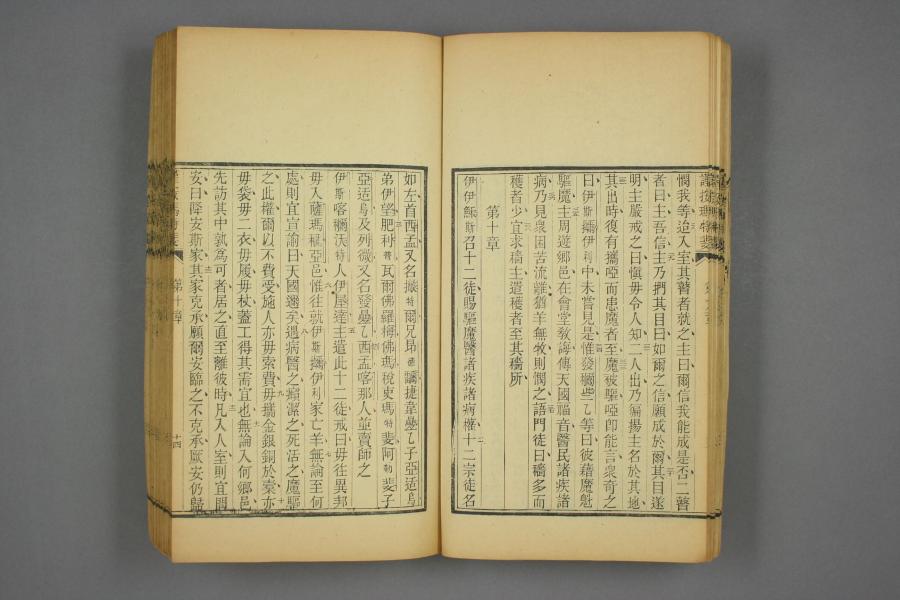 憫我等迨入室其瞽者就之主曰爾信我能成是否二瞽
者曰主吾信主乃捫其目曰如爾之信願成於爾其目遂
明主嚴戒之曰愼毋令人知二人出乃徧揚主名於其地
其出時復有攜啞而串魔者至魔被驅啞即能言衆奇之
曰伊斯伊利中未嘗見是惟發乙等曰彼藉魔魁
驅魔主周遊鄉邑在會堂敎誨傳天國福音醫民諸疾諸
病乃見衆困苦流離猶羊無牧則憫之語門徒曰穡多而
穫者少宜求穡主遣穫者至其穡所
第十章
伊伊穌斯召十二徒賜驅魔醫諸疾諸病權十二宗徒名
如左首西孟又名特爾兄昂捷韋乙子亞适烏
弟伊望肥利普瓦爾佛羅梅佛瑪稅吏瑪特斐阿勒斐子
亞适烏及列微又名發乙西孟喀那人並賣師之
伊斯喀沃特人伊屋達主遣此十二徒戒曰毋往異邦
毋入薩瑪亞邑惟往就伊斯伊利家亡羊無論至何
處則宜宣諭曰天國邇矣遇病醫之癩潔之死活之魔驅
之此權爾以不費受施人亦毋索費毋攜金銀銅於橐亦
毋袋毋二衣毋履毋杖蓋工得其需宜也無論入何鄉邑
先訪其中孰爲可者居之直至離彼時凡入人室則宜問
安曰降安斯家其家克承願爾安臨之不克承厥安仍歸
第十章
十四